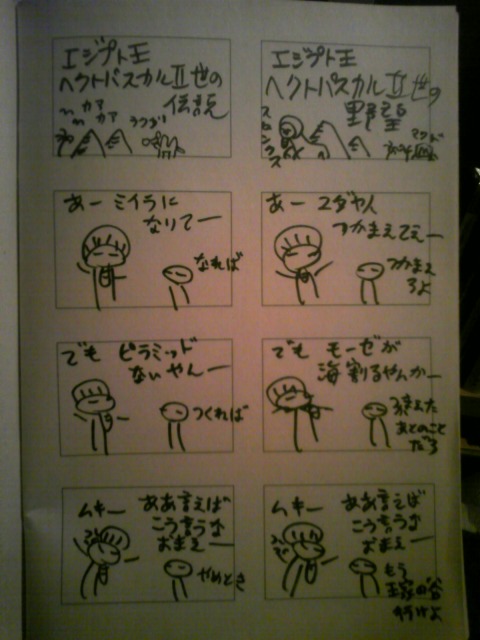 エジプト王
ヘクトパスカルⅡ世の
伝説
カア
カア
ラクダ
あー ミイラに
なりてー
なれば
でも ピラミッド
ないやんー
つくれば
ムキー
ああ言えば
こう言うな
おまえー
やめとき
エジプト王
ヘクトパスカルⅡ世の
野望
マクド
あー ユダヤ人
つかまえてえー
つかまえ
ろよ
でも モーゼが
海割るやんかー
捕まえた
あとのこと
だろ
ムキー
ああ言えば
こう言うな
おまえー
もう
王家の谷
行けよ